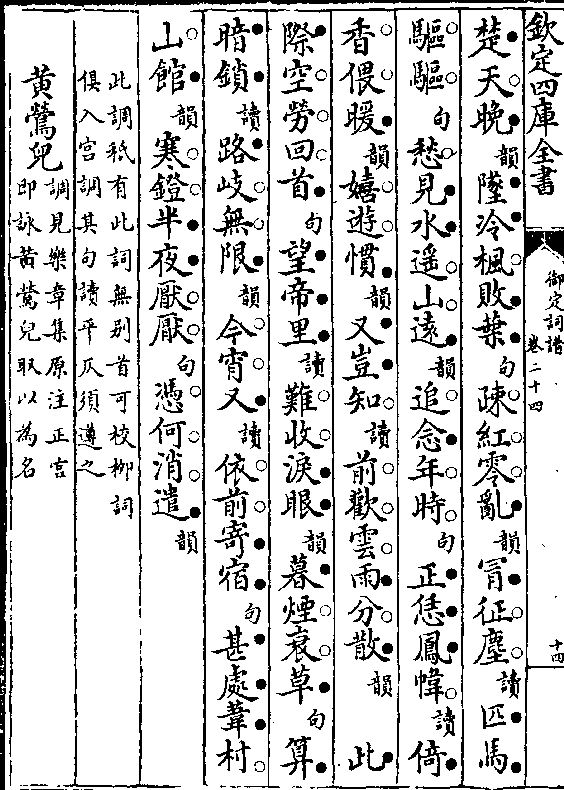 欽定四庫全書
御定詞譜
卷二十四
十四
楚天晚韻墜冷楓敗葉句疎紅零亂韻冒征塵讀匹馬
驅驅句愁見水遥山遠韻追念年時句正恁鳳幃讀倚
香偎暖韻嬉遊慣韻又豈知讀前歡雲雨分散韻此
際空勞回首句望帝里讀難收淚眼韻暮煙衰草句算
暗鎖讀路岐無限韻今宵又讀依前寄宿句甚處葦村
山館韻寒鐙半夜厭厭句憑何消遣韻
此調秪有此詞無别首可校柳詞
俱入宫調其句讀平仄須遵之
黄鶯兒
調見樂章集原注正宫
即詠黄鶯兒取以為名